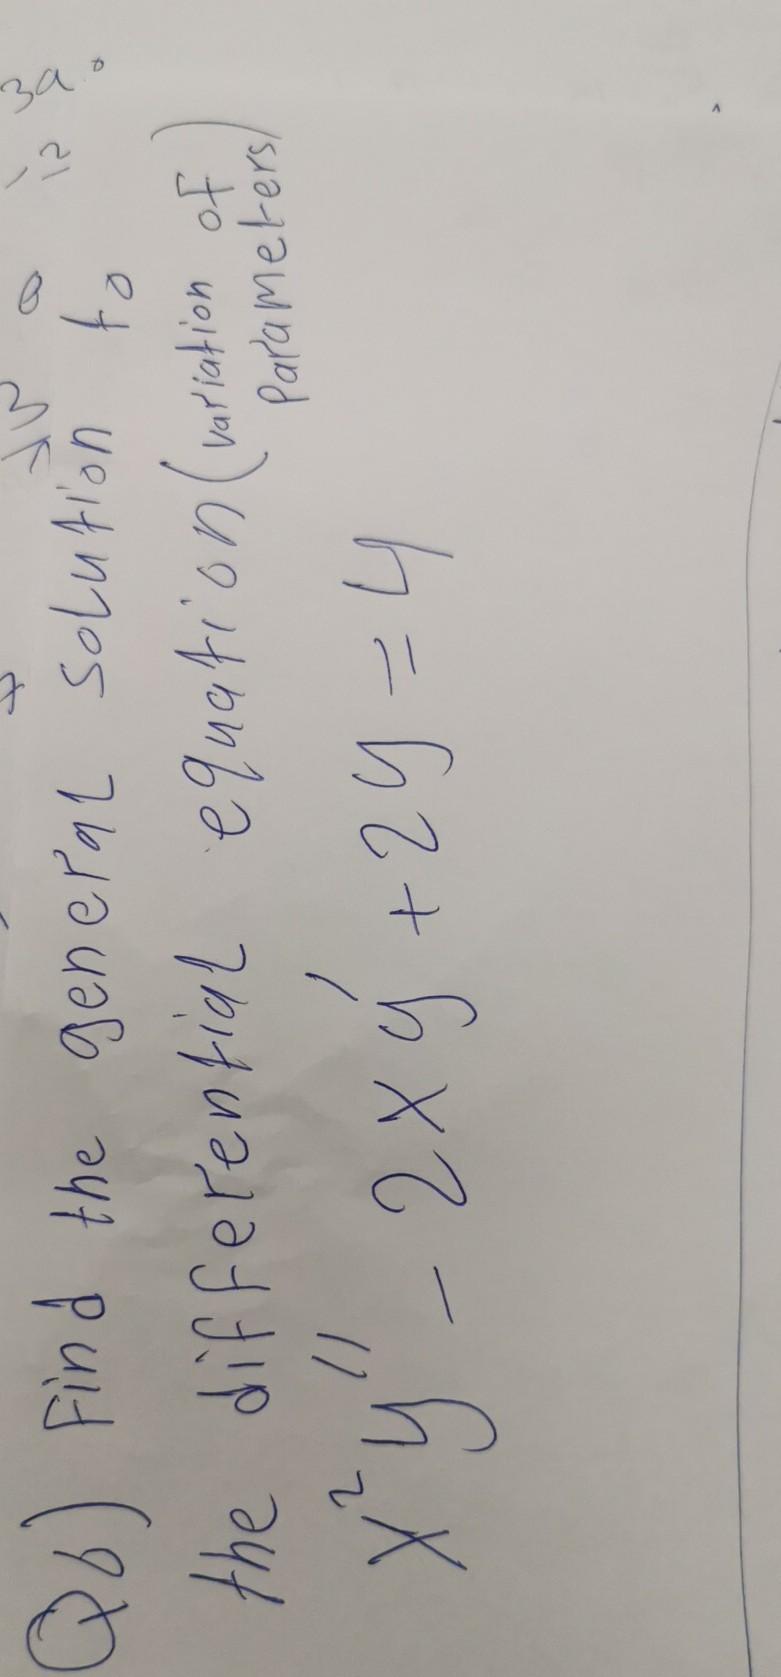 Q6) Find the general solution to
the differential equation (variation of
parameters)
x²y'' - 2xy' + 2y = 4